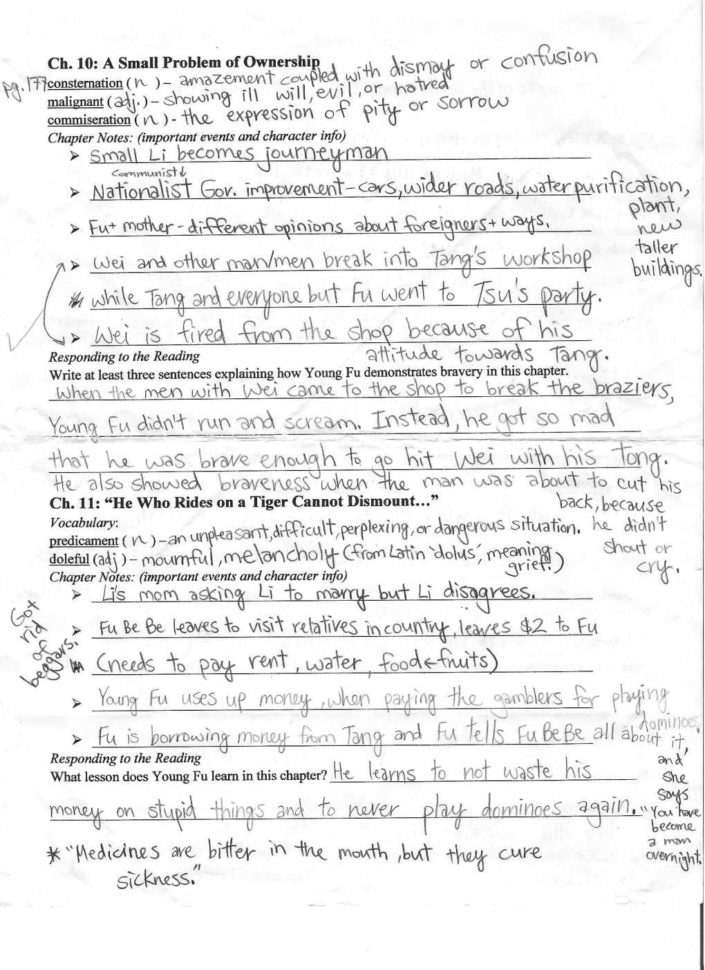 Ch. 10: A Small Problem of Ownership
pg. 177 consternation (n ) - amazement coupled with dismay or confusion
malignant (adj.) - showing ill will, evil, or hatred
commiseration (n ) - the expression of pity or sorrow
Chapter Notes: (important events and character info)
➤ Small Li becomes journeyman
Communist↓
➤ Nationalist Gov. improvement - cars, wider roads, water purification,
plant,
new
taller
buildings.
➤ Fu + mother - different opinions about foreigners + ways.
➤ Wei and other man/men break into Tang's workshop
while Tang and everyone but Fu went to Tsu's party.
➤ Wei is fired from the shop because of his
attitude towards Tang.
Responding to the Reading
Write at least three sentences explaining how Young Fu demonstrates bravery in this chapter.
When the men with Wei came to the shop to break the braziers,
Young Fu didn't run and scream. Instead, he got so mad
that he was brave enough to go hit Wei with his Tong.
He also showed braveness when the man was about to cut his
back, because
he didn't
shout or
cry.
Ch. 11: “He Who Rides on a Tiger Cannot Dismount…”
Vocabulary:
predicament (n ) - an unpleasant, difficult, perplexing, or dangerous situation.
doleful (adj ) - mournful, melancholy (from Latin 'dolus', meaning
grief.)
Chapter Notes: (important events and character info)
➤ Li's mom asking Li to marry but Li disagrees.
➤ Fu Be Be leaves to visit relatives in country, leaves $2 to Fu
(needs to pay rent, water, food←fruits)
Got
rid
of
beggars.
➤ Young Fu uses up money, when paying the gamblers for playing
dominoes.
➤ Fu is borrowing money from Tang and Fu tells Fu Be Be all about it,
and
she
says
"You have
become
a man
overnight.
Responding to the Reading
What lesson does Young Fu learn in this chapter? He learns to not waste his
money on stupid things and to never play dominoes again.
* "Medicines are bitter in the mouth, but they cure
sickness."